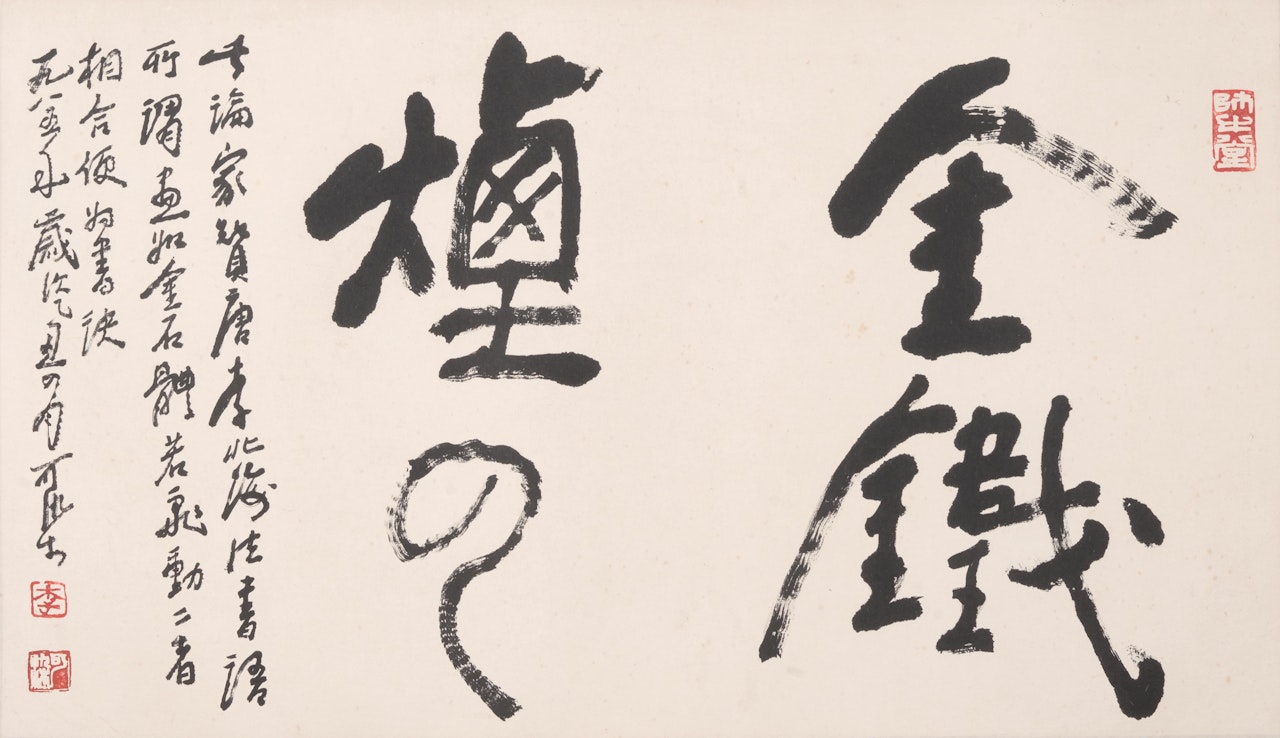 師牛堂
金鐵
煙云
此論家贊唐李北海法書語
所謂畫如金石體若飛動二者
相合便為書訣
一九八五年歲次乙丑四月可染書
李
可染